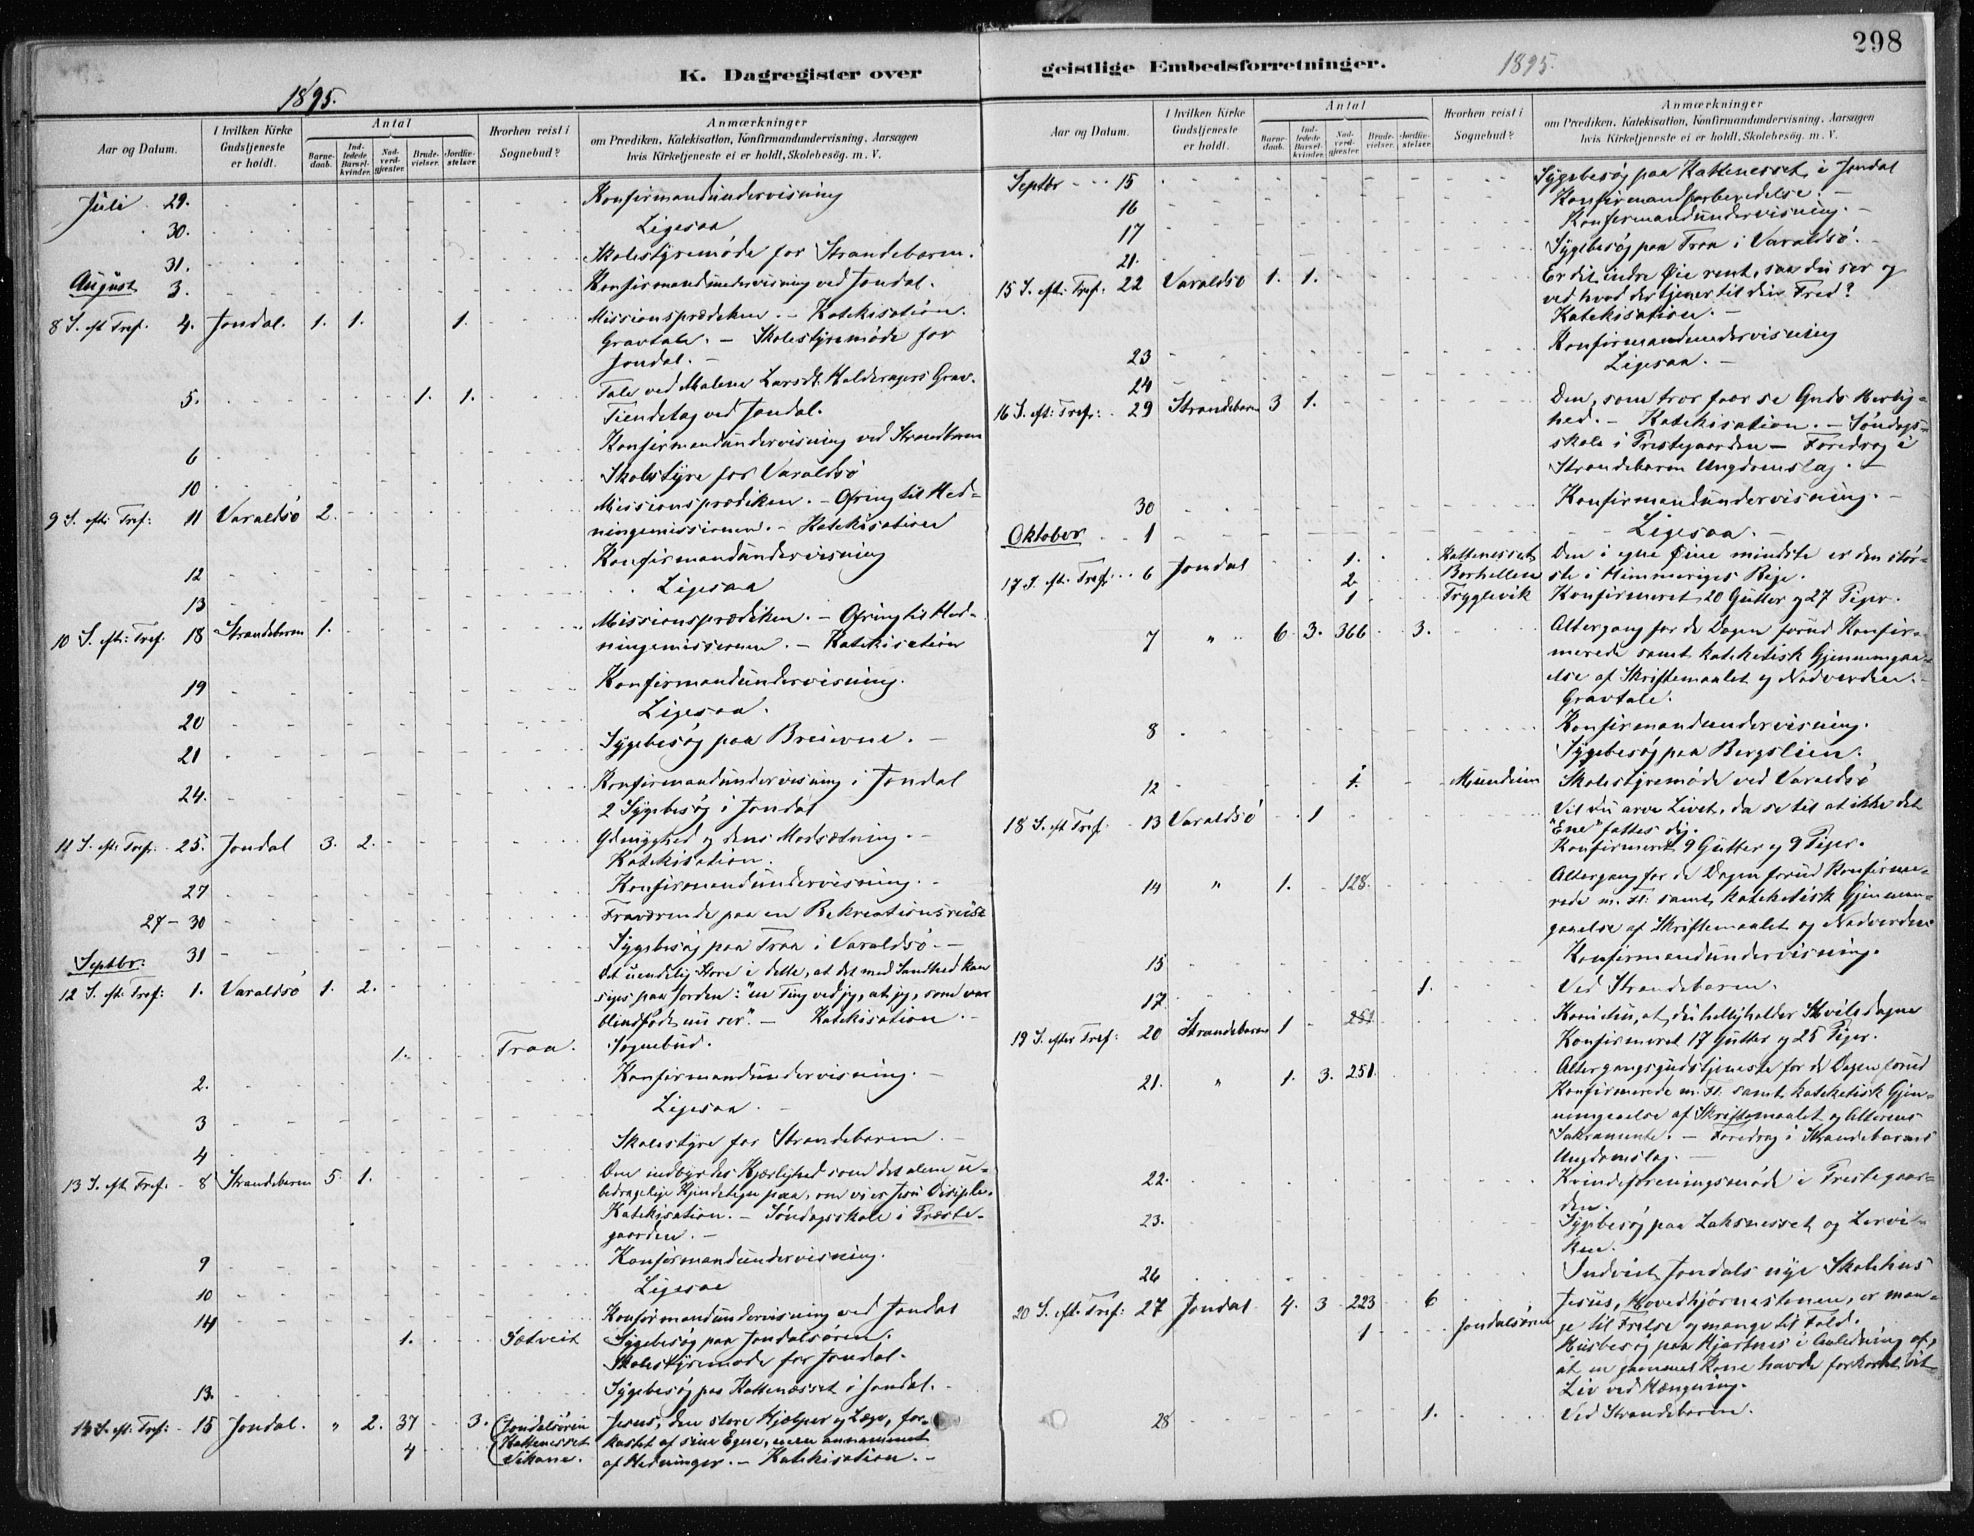 298
K. Dagregister over geistlige Embedsforretninger.
1895.
1895.
Aar og Datum.
I hvilken Kirke Gudstjeneste er holdt.
Antal
Barnedaab.
Indledede Barselkvinder.
Nadverdgjæster.
Brudevielser.
Jordfæstelser.
Hvorhen reist i Sognebud?
Anmærkninger
om Prædiken, Katekisation, Konfirmandundervisning, Aarsagen
hvis Kirketjeneste ei er holdt, Skolebesög, m. V.
Juli 29. Konfirmandundervisning
30. Ligesaa
31. Skolestyremøde for Strandebarm.
August 3. Konfirmandundervisning ved Jondal.
8 S. eft Tref. 4. Jondal. 1. 1. 1. Missionsprædiken. – Katekisation.
Gravtale. – Skolestyremøde for
Jondal. –
5. 1. 1. Tale ved Malene Larsdt. Grav.
Tiendetag ved Jondal.
6 Konfirmandundervisning ved Strandebarm
10 Skolestyre for Varaldsö
9 S. eft: Tref: 11 Varaldsö 2. Missionsprædiken. – Ofring til Hed-
ningemissionen. – Katekisation
12 Konfirmandundervisning
13 Ligesaa
10 S. eft: Tref. 18 Strandebarm 1. Missionsprædiken. – Ofring til Hed-
ningemissionen. – Katekisation
19 Konfirmandundervisning.
20 Ligesaa.
21 Sygebesøg paa Breievne. –
24. Konfirmandundervisning i Jondal
2 Sygebesøg i Jondal
11 S. eft: Tref. 25. Jondal 3. 2. Ydmyghed og dens Modsætning. –
Katekisation.
27 Konfirmandundervisning. –
27 – 30 Fraværende paa en Rekreationsreise
31 Sygebesøg paa Traa i Varaldsö. –
Septbr:
12 S. eft: Tref: 1. Varaldsö 1. 2. Det uendelig Store i dette, at det med Sandhed kan
siges paa Jorden: "en Ting ved jeg, at jeg, som var
blindfødt nu ser". – Katekisation. –
1. Traa. Sognebud.
2. Konfirmandundervisning. –
3 Ligesaa. –
4 Skolestyre for Strandebarm. –
13 S. eft Tref. 8 Strandebarm 5. 1. Den indbyrdes Kjærlighed som det alene u-
bedragelige Kjendetegn paa, om vi er Jesu Disiple.
Katekisation. – Søndagsskole i Præste-
gaarden. –
9 Konfirmandundervisning.
10 Ligesaa
14 Konfirmandundervisning ved Jondal
1. Sætveit Sygebesøg paa Jondalsøren.
Skolestyremøde for Jondal.
13. Sygebesøg paa Kattenæsset i Jondal.
14 S. eft: Tref: 15 Jondal. " 2. 37 3. Jondalsören Jesus, den store Hjælper og Læge, for-
4 Kattenesset kastet af sine Egne, men annammet
Vikane. af Hedninger. – Katekisation. –
Septbr 15 Sygebesøg paa Kattenesset i Jondal
16 Konfirmandforberedelse. –
17 Konfirmandundervisning. –
21. Sygebesøg paa Traa i Varaldsö.
15 S. eft: Tref: 22 Varaldsö 1. 1. Er dit indre Øie rent, saa du ser og
ved hvad der tjener til din Fred?
Katekisation. –
23 Konfirmandundervisning
24 Ligesaa. –
16 S. eft: Tref: 29 Strandebarm 3 1. Den, som tror faar se Guds Herlig-
hed. – Katekisation. – Søndags-
skole i Prestegaarden – Foredrag i
Strandebarm Ungdomslag. –
30 Konfirmandundervisning. –
Oktober 1 Ligesaa. –
17 S. eft. Tref: 6 Jondal 1. Kattenesset Den i egne Øine mindste er den stør-
2. Berhellen ste i Himmeriges Rige.
1 Tryglevik Konfirmeret 20 Gutter og 27 Piger.
7 " 6 3. 366 3. Altergang for de Dagen forud Konfir-
merede samt kateketisk Gjennemgaa-
else af Skriftemaalet og Nadverden. –
Gravtale.
8 Konfirmandundervisning.
Sygebesøg paa Bergslien.
12 1. Mundeim Skolestyremøde ved Varaldsö
18 S. eft Tref. 13 Varaldsö 1 Vil du arve Livet, da se til at ikke det
"Ene" fattes dig.
Konfirmeret 9 Gutter og 9 Piger.
14 " 1. 128. Altergang for de Dagen forud Konfirme-
rede m. Fl. samt kateketisk Gjennem-
gaaelse af Skriftemaalet og Nadverden
15 Konfirmandundervisning.
17 1. Ved Strandebarm.
19 S. efter Tref: 20 Strandebarm 1 251 Kom ihu, at du helligholder Hviledagen
Konfirmeret 17 Gutter og 25 Piger.
21. " 1. 3. 251. Altergangsgudstjeneste for de Dagen forud
Konfirmerede m. Fl. samt kateketisk Gjen-
nemgaaelse af Skriftemaalet og Alterens
Sakramente. – Foredrag i Strandebarms
Ungdomslag. –
22. Kvindeforeningsmøde i Prestegaar-
den.
23. Sygebesøg paa Laksnesset og Lervi-
ken.
26 Indviet Jondals nye Skolehus
20 S. eft. Tref: 27 Jondal 4. 3 223 6 Jesus, Hovedhjørnestenen, er man-
1 Jondalsören ge til Frelse og mange til Fald.
Husbesøg paa Hjartnes i Anledning af,
at en gammel Kone havde forkortet sit
Liv ved Hængning.
28 1. Ved Strandebarm.